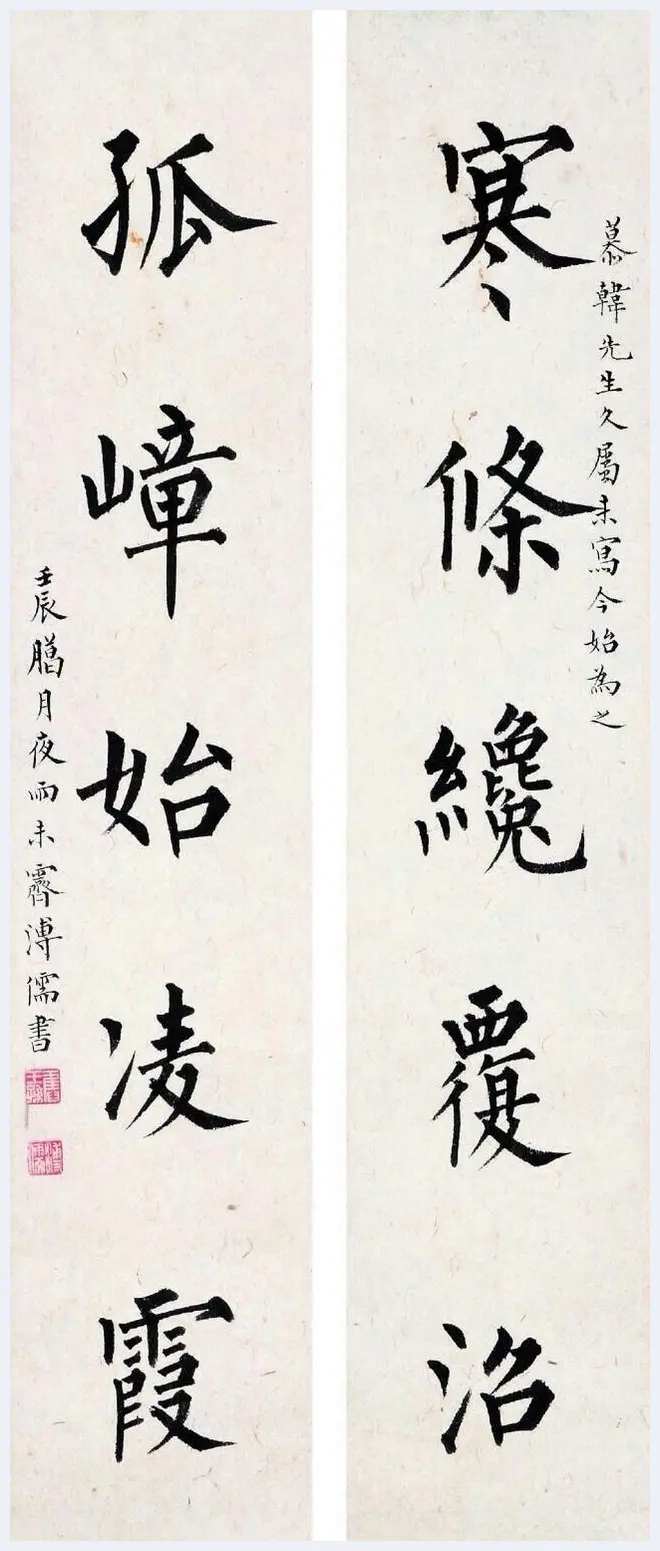 慕韓先生久屬未寫今始為之
寒條纔覆沼
孤嶂始凌霞
壬辰臈月夜雨未霽溥儒書
溥儒